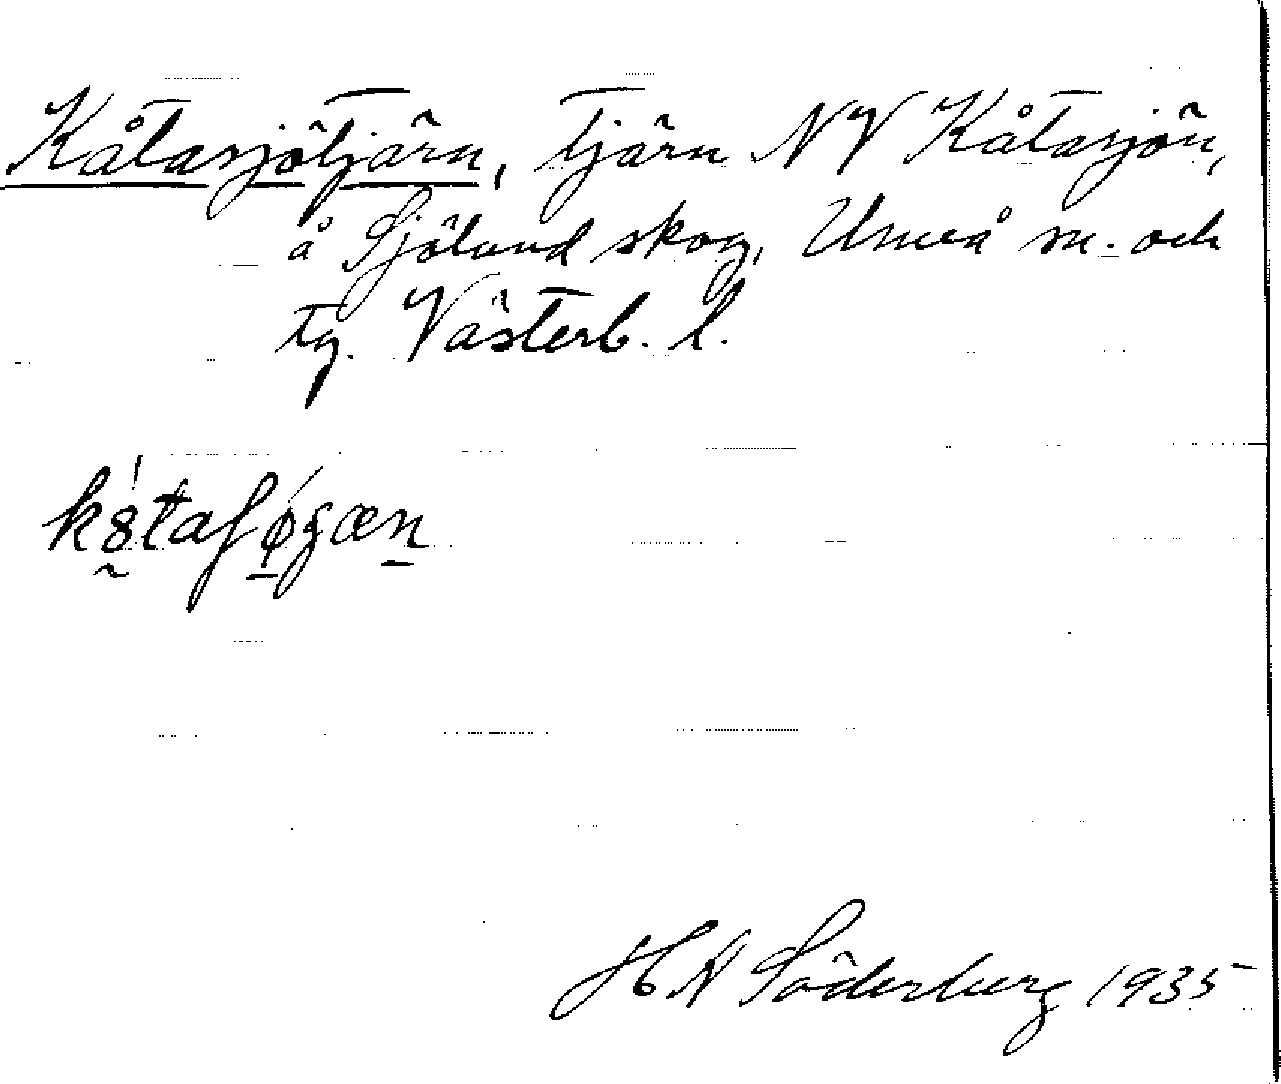 Kåtasjötjärn, tjärn NV Kåtasjön,
å Sjölund skog, Umeå sn. och
tg. Västerb. l.
H N Söderberg 1935